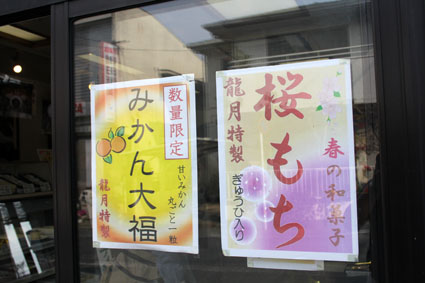 数量限定
みかん大福
甘いみかん
丸ごと一粒
龍月特製
春の和菓子
桜もち
龍月特製
ぎゅうひ入り